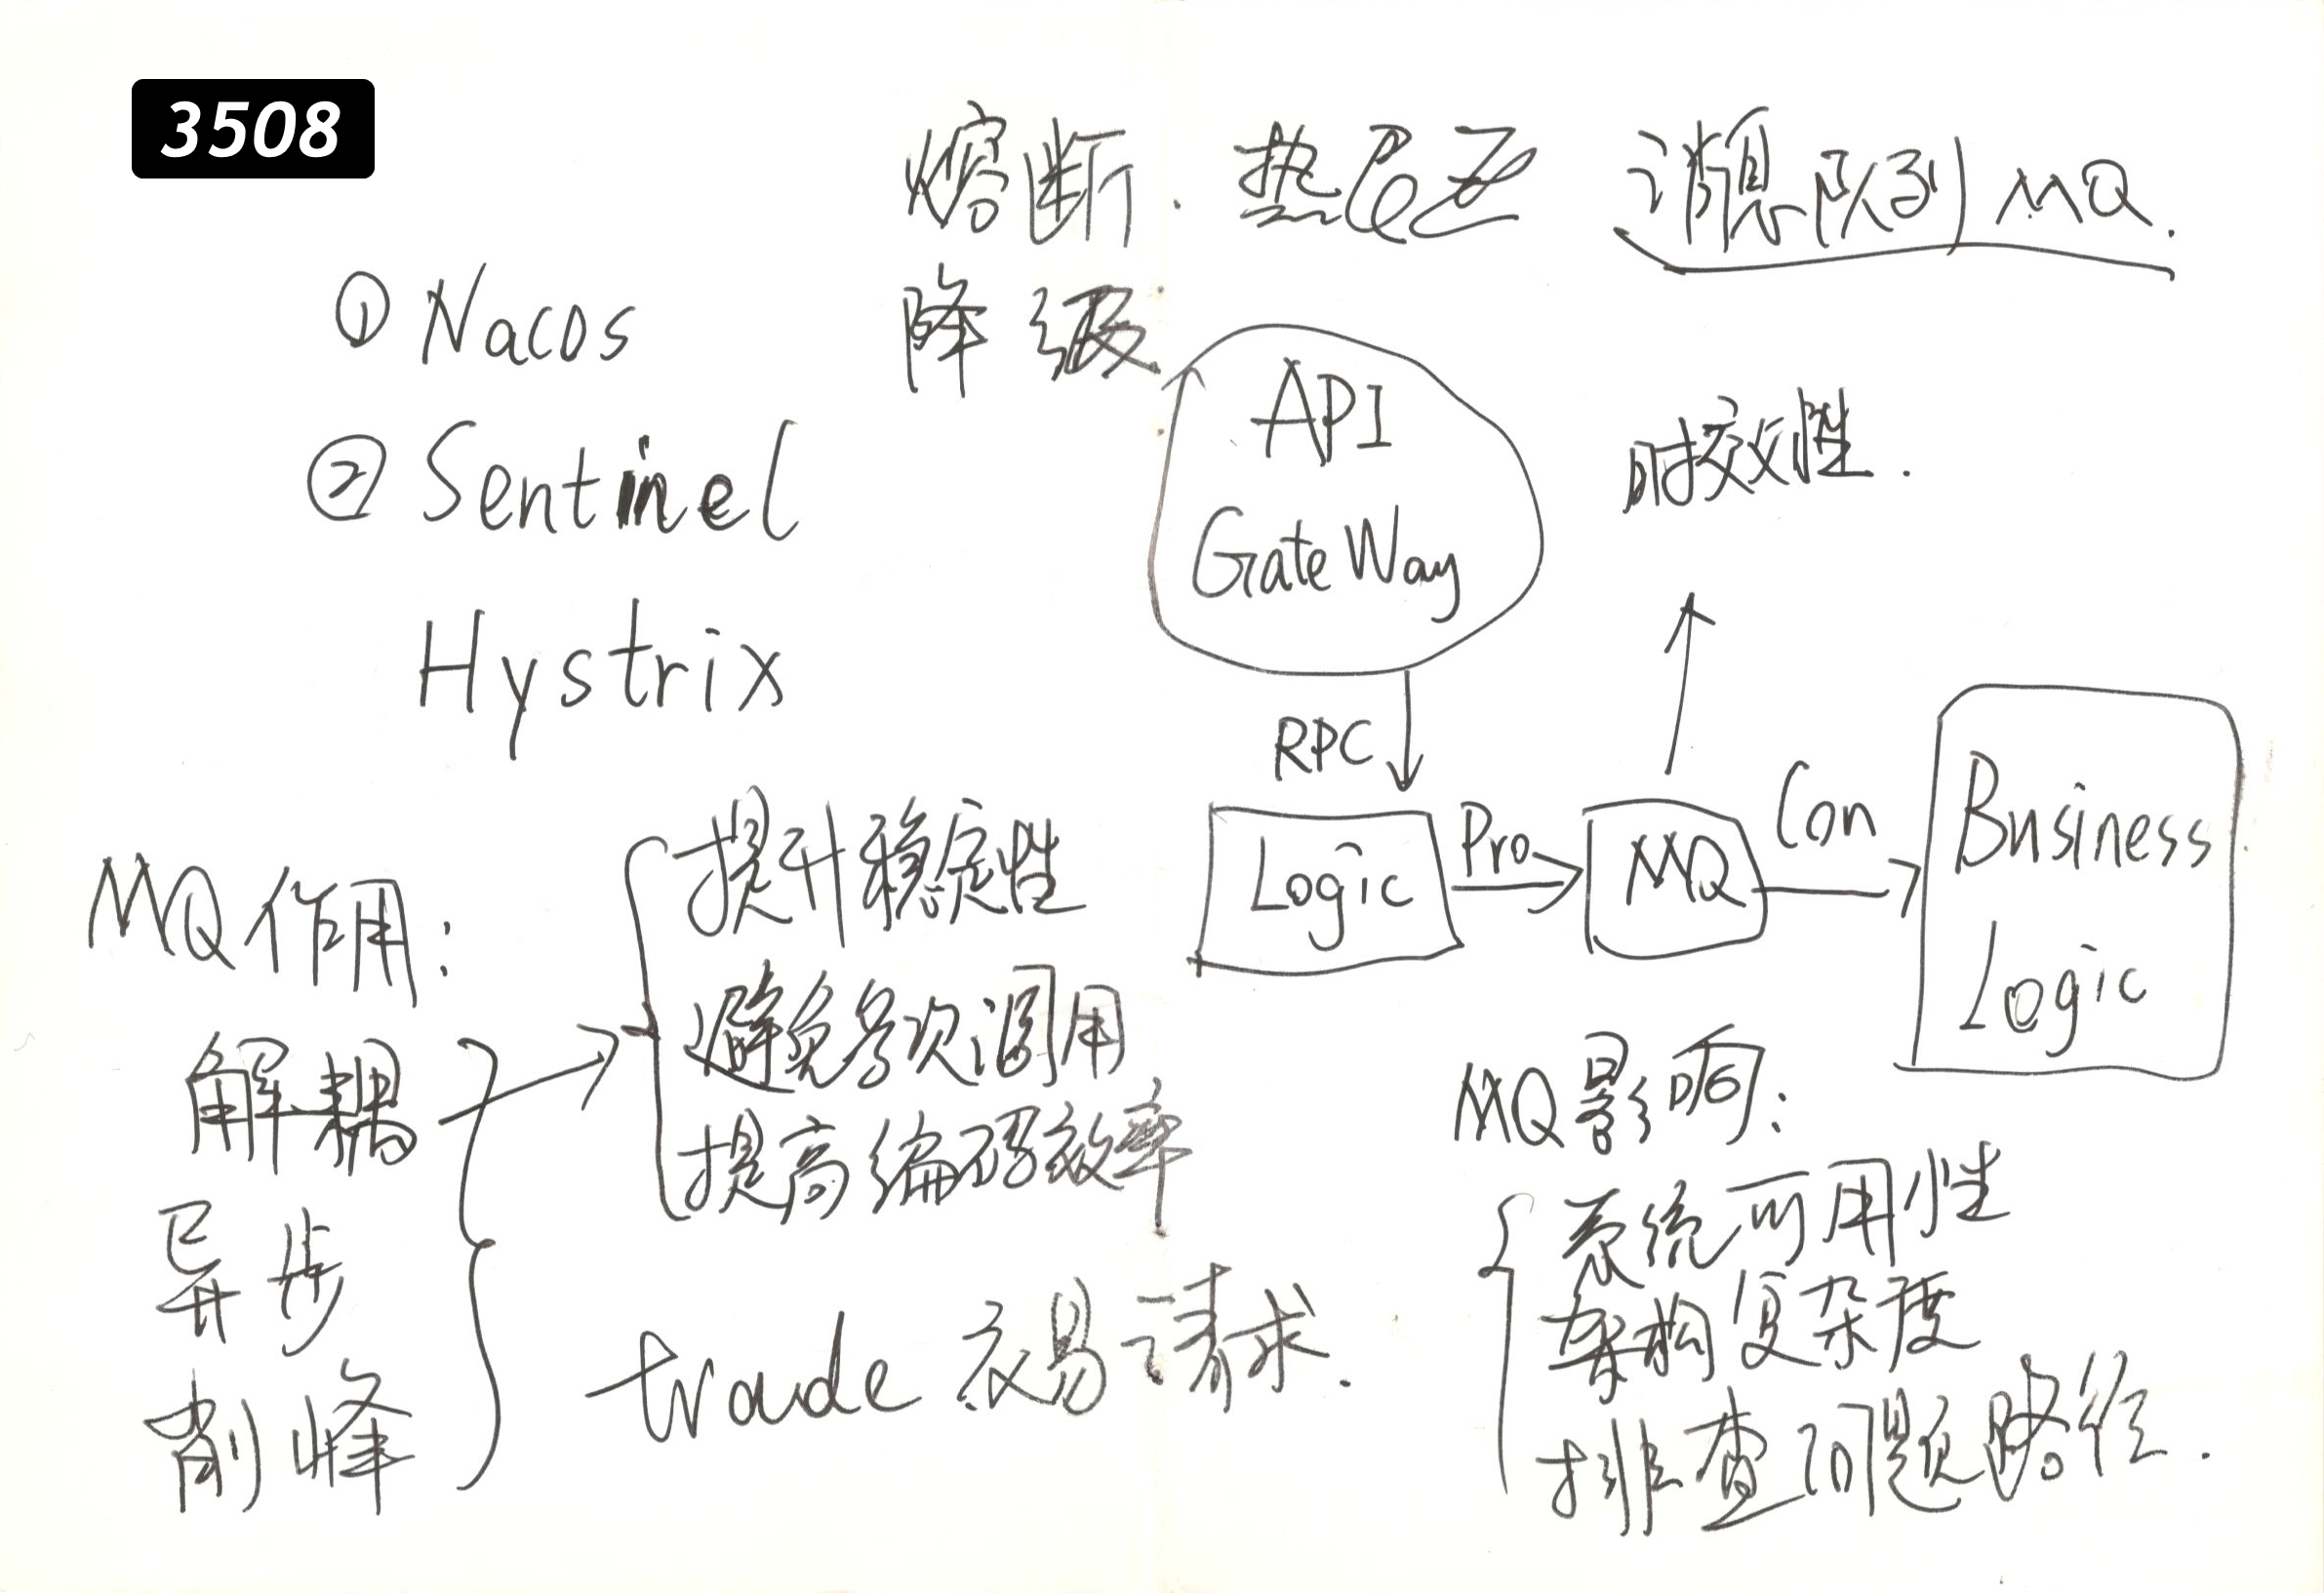 3508
熔断. 热配置 消息队列 MQ.
降级.
① Nacos
② Sentinel
Hystrix
API
GateWay
时效性.
RPC
Logic
Pro
MQ
Con
Business
Logic
MQ作用:
解耦
异步
削峰
提升稳定性
避免多次调用
提高编码效率
trade 交易请求.
MQ影响:
系统可用性
架构复杂度
排查问题路径.